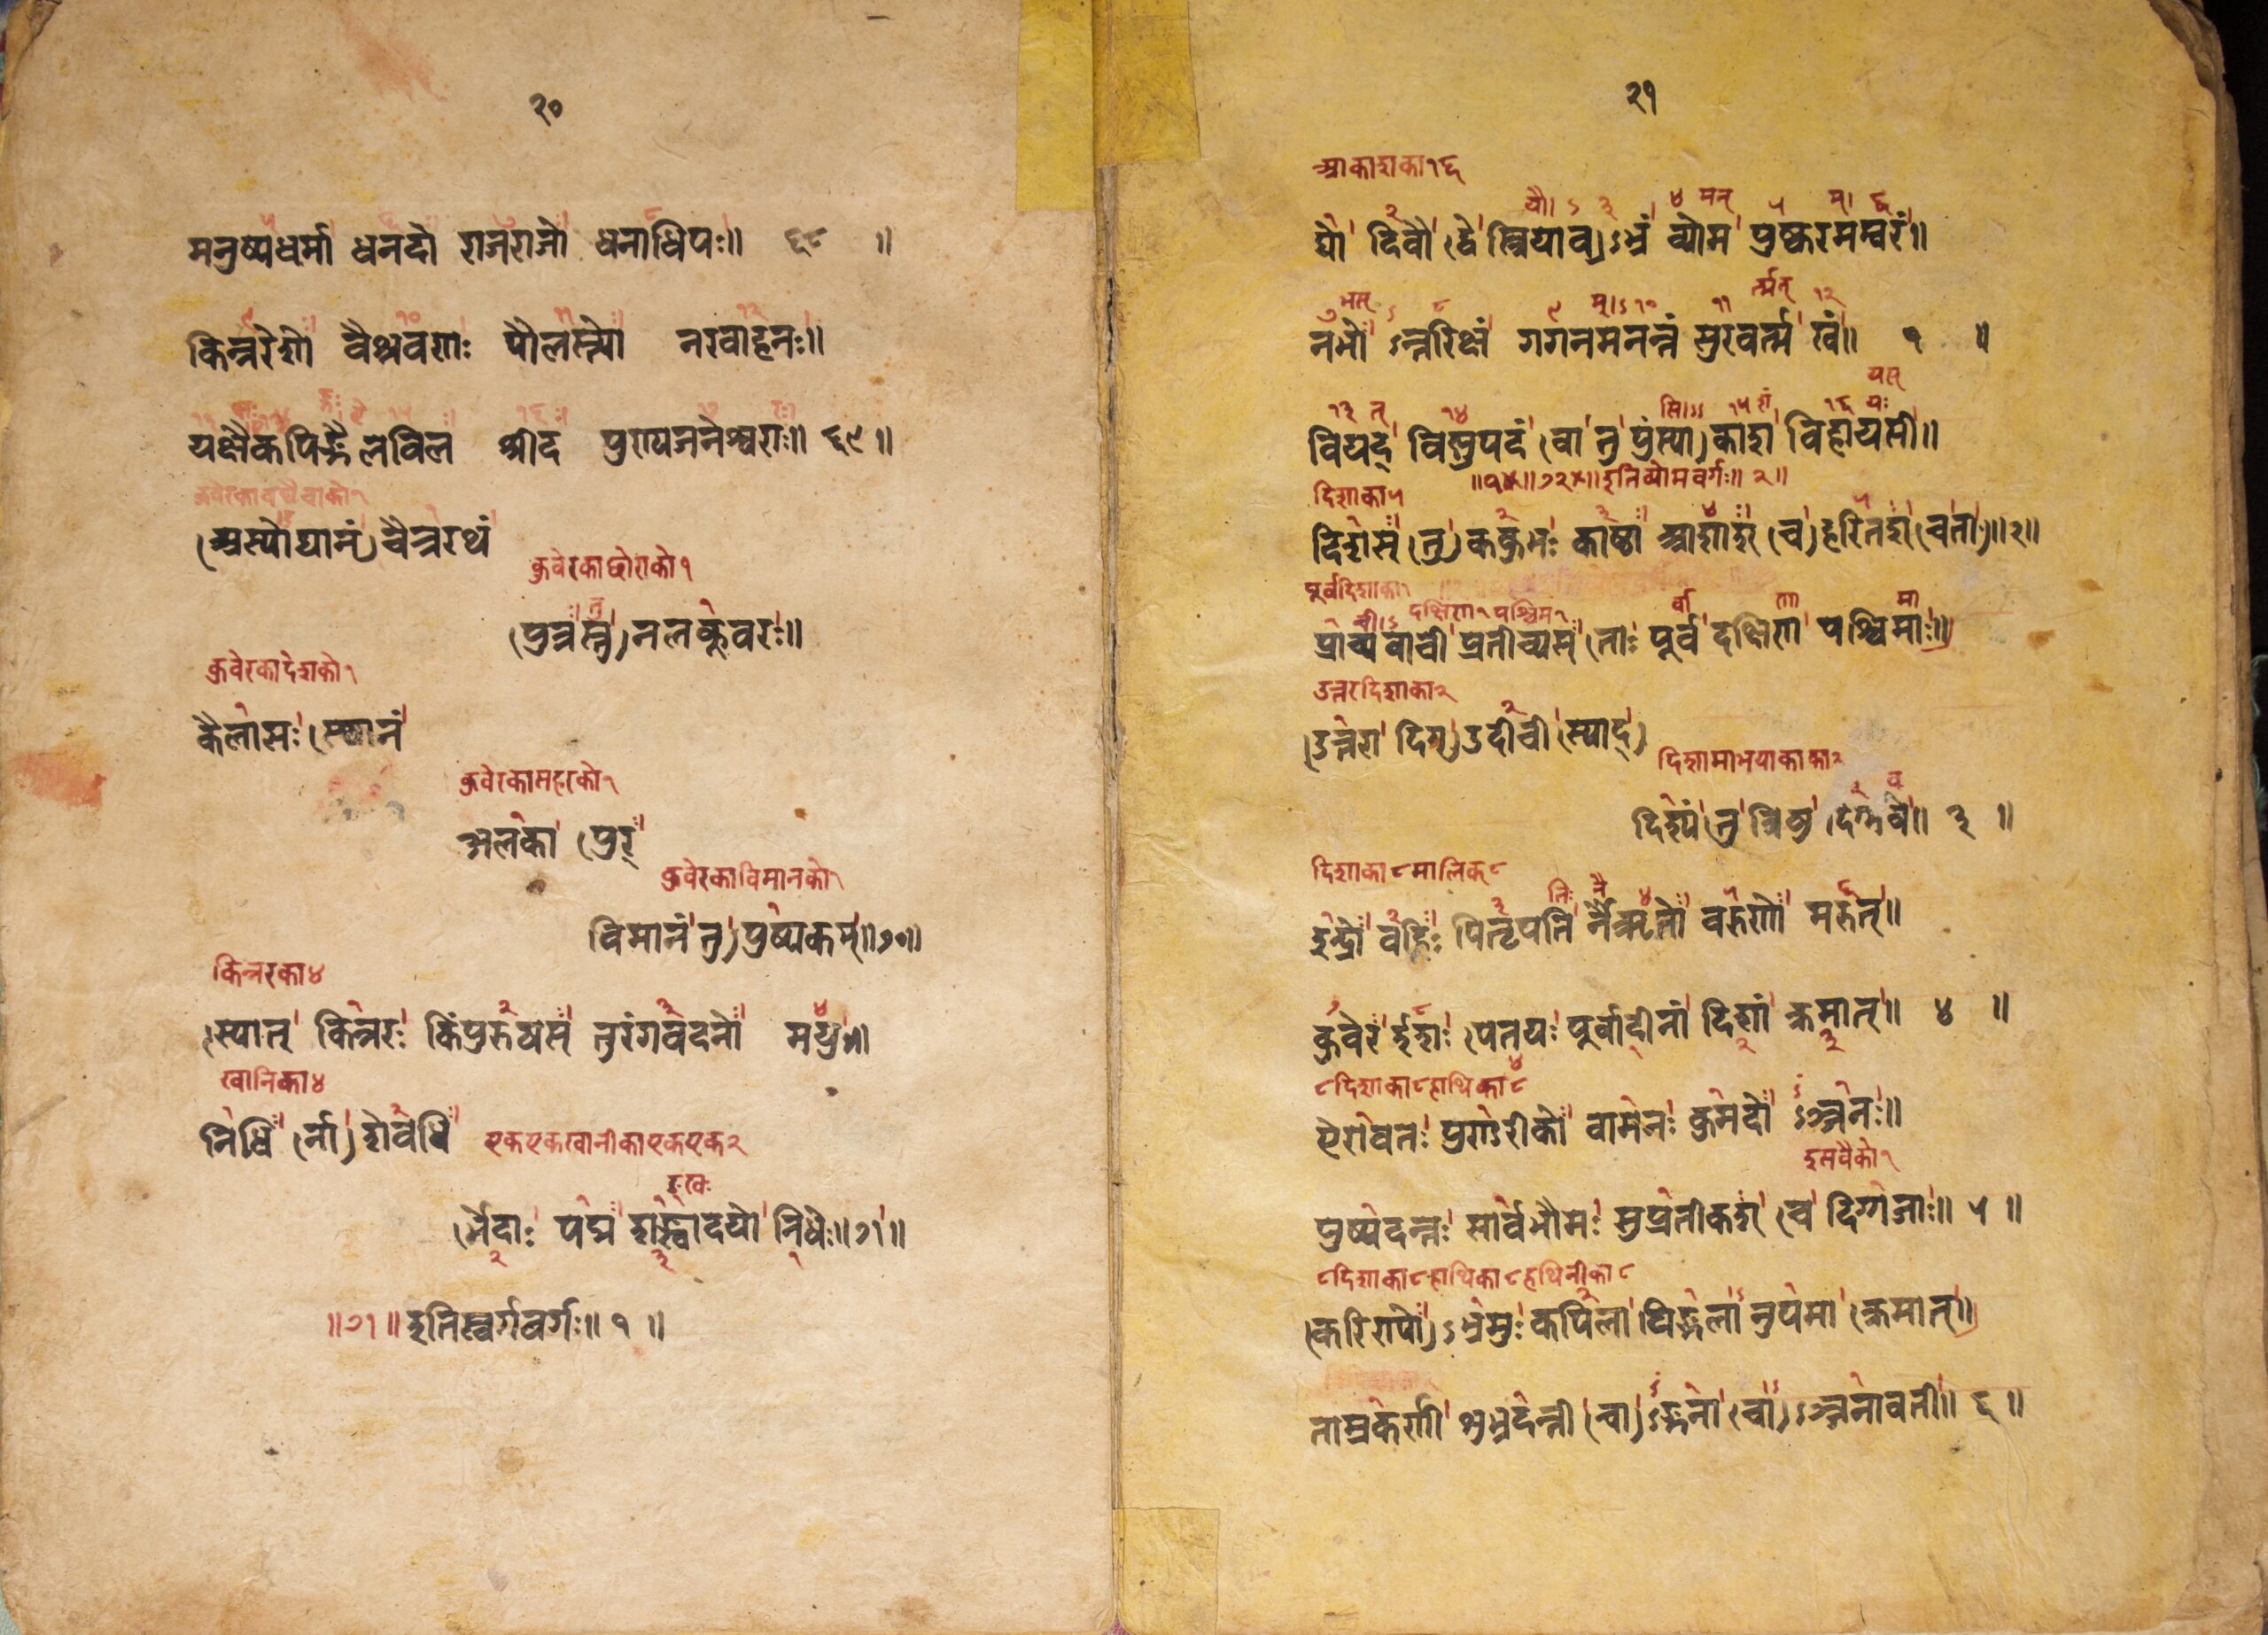 २०
मनुष्यधर्मा धनदो राजराजो धनाधिपः॥ ६८ ॥
किन्नरेशो वैश्रवणः पौलस्त्यो नरवाहनः॥
यक्षैकपिङ्गैलविल श्रीद पुण्यजनेश्वराः॥ ६९ ॥
कुवेरकावघैचाको१
(अस्योद्यानं) चैत्ररथं
कुवेरकाछोराको१
(पुत्रस्तु) नलकूवरः॥
कुवेरकादेशको१
कैलासः (स्थानं
कुवेरकासहरको१
अलका (पुर्
कुवेरकाविमानको१
विमानं तु) पुष्पकम्॥७०॥
किन्नरका४
(स्यात् किन्नरः किंपुरुषस् तुरंगवदनो मयुः॥
खानिका४
निधि (र्ना) शेवधि
एकएकखानीकाएकएक२
(र्भेदाः पद्म शङ्खादयो निधेः॥७१॥
॥७१॥ इतिस्वर्गवर्गः॥ १ ॥
२१
आकाशका१६
द्यो दिवौ (द्वे स्त्रियाव)ऽभ्रं व्योम पुष्करमम्बरं॥
नभो ऽन्तरिक्षं गगनमनन्तं सुरवर्त्म खं॥ १ ॥
वियद् विष्णुपदं (वा तु पुंस्या)काश विहायसी॥
॥१॥७२॥इतिव्योमवर्गः॥ २॥
दिशाका५
दिशस् (तु) ककुभः काष्ठा आशाश् (च) हरितश् (च ताः)॥२॥
पूर्वदिशाका१ दक्षिण१ पश्चिम१
प्राच्यवाची प्रतीच्यस् (ताः पूर्व दक्षिण पश्चिमाः॥)
उत्तरदिशाका२
(उत्तरा दिग्) उदीची (स्याद्)
दिशामाभयाकाका२
दिश्यं (तु त्रिषु दिग्भवे॥ ३ ॥
दिशाका८मालिक८
इन्द्रो वह्निः पितृपति र्नैऋतो वरुणो मरुत्॥
कुवेर ईशः (पतयः पूर्वादीनां दिशां क्रमात्॥ ४ ॥
८दिशाका८हात्थिका८
ऐरावतः पुण्डरीको वामनः कुमदो ऽञ्जनः॥
इसवैको१
पुष्पदन्तः सार्वभौमः सुप्रतीकश् (च दिग्गजाः॥ ५ ॥
८दिशाका८हात्थिका८हथिनीका८
(करिण्यो)ऽभ्रमुः कपिला पिङ्गला नुपमा (क्रमात्॥)
ताम्रकर्णी शुभ्रदन्ती (चा)ऽङ्गना (चा)ऽञ्जनावती॥ ६ ॥